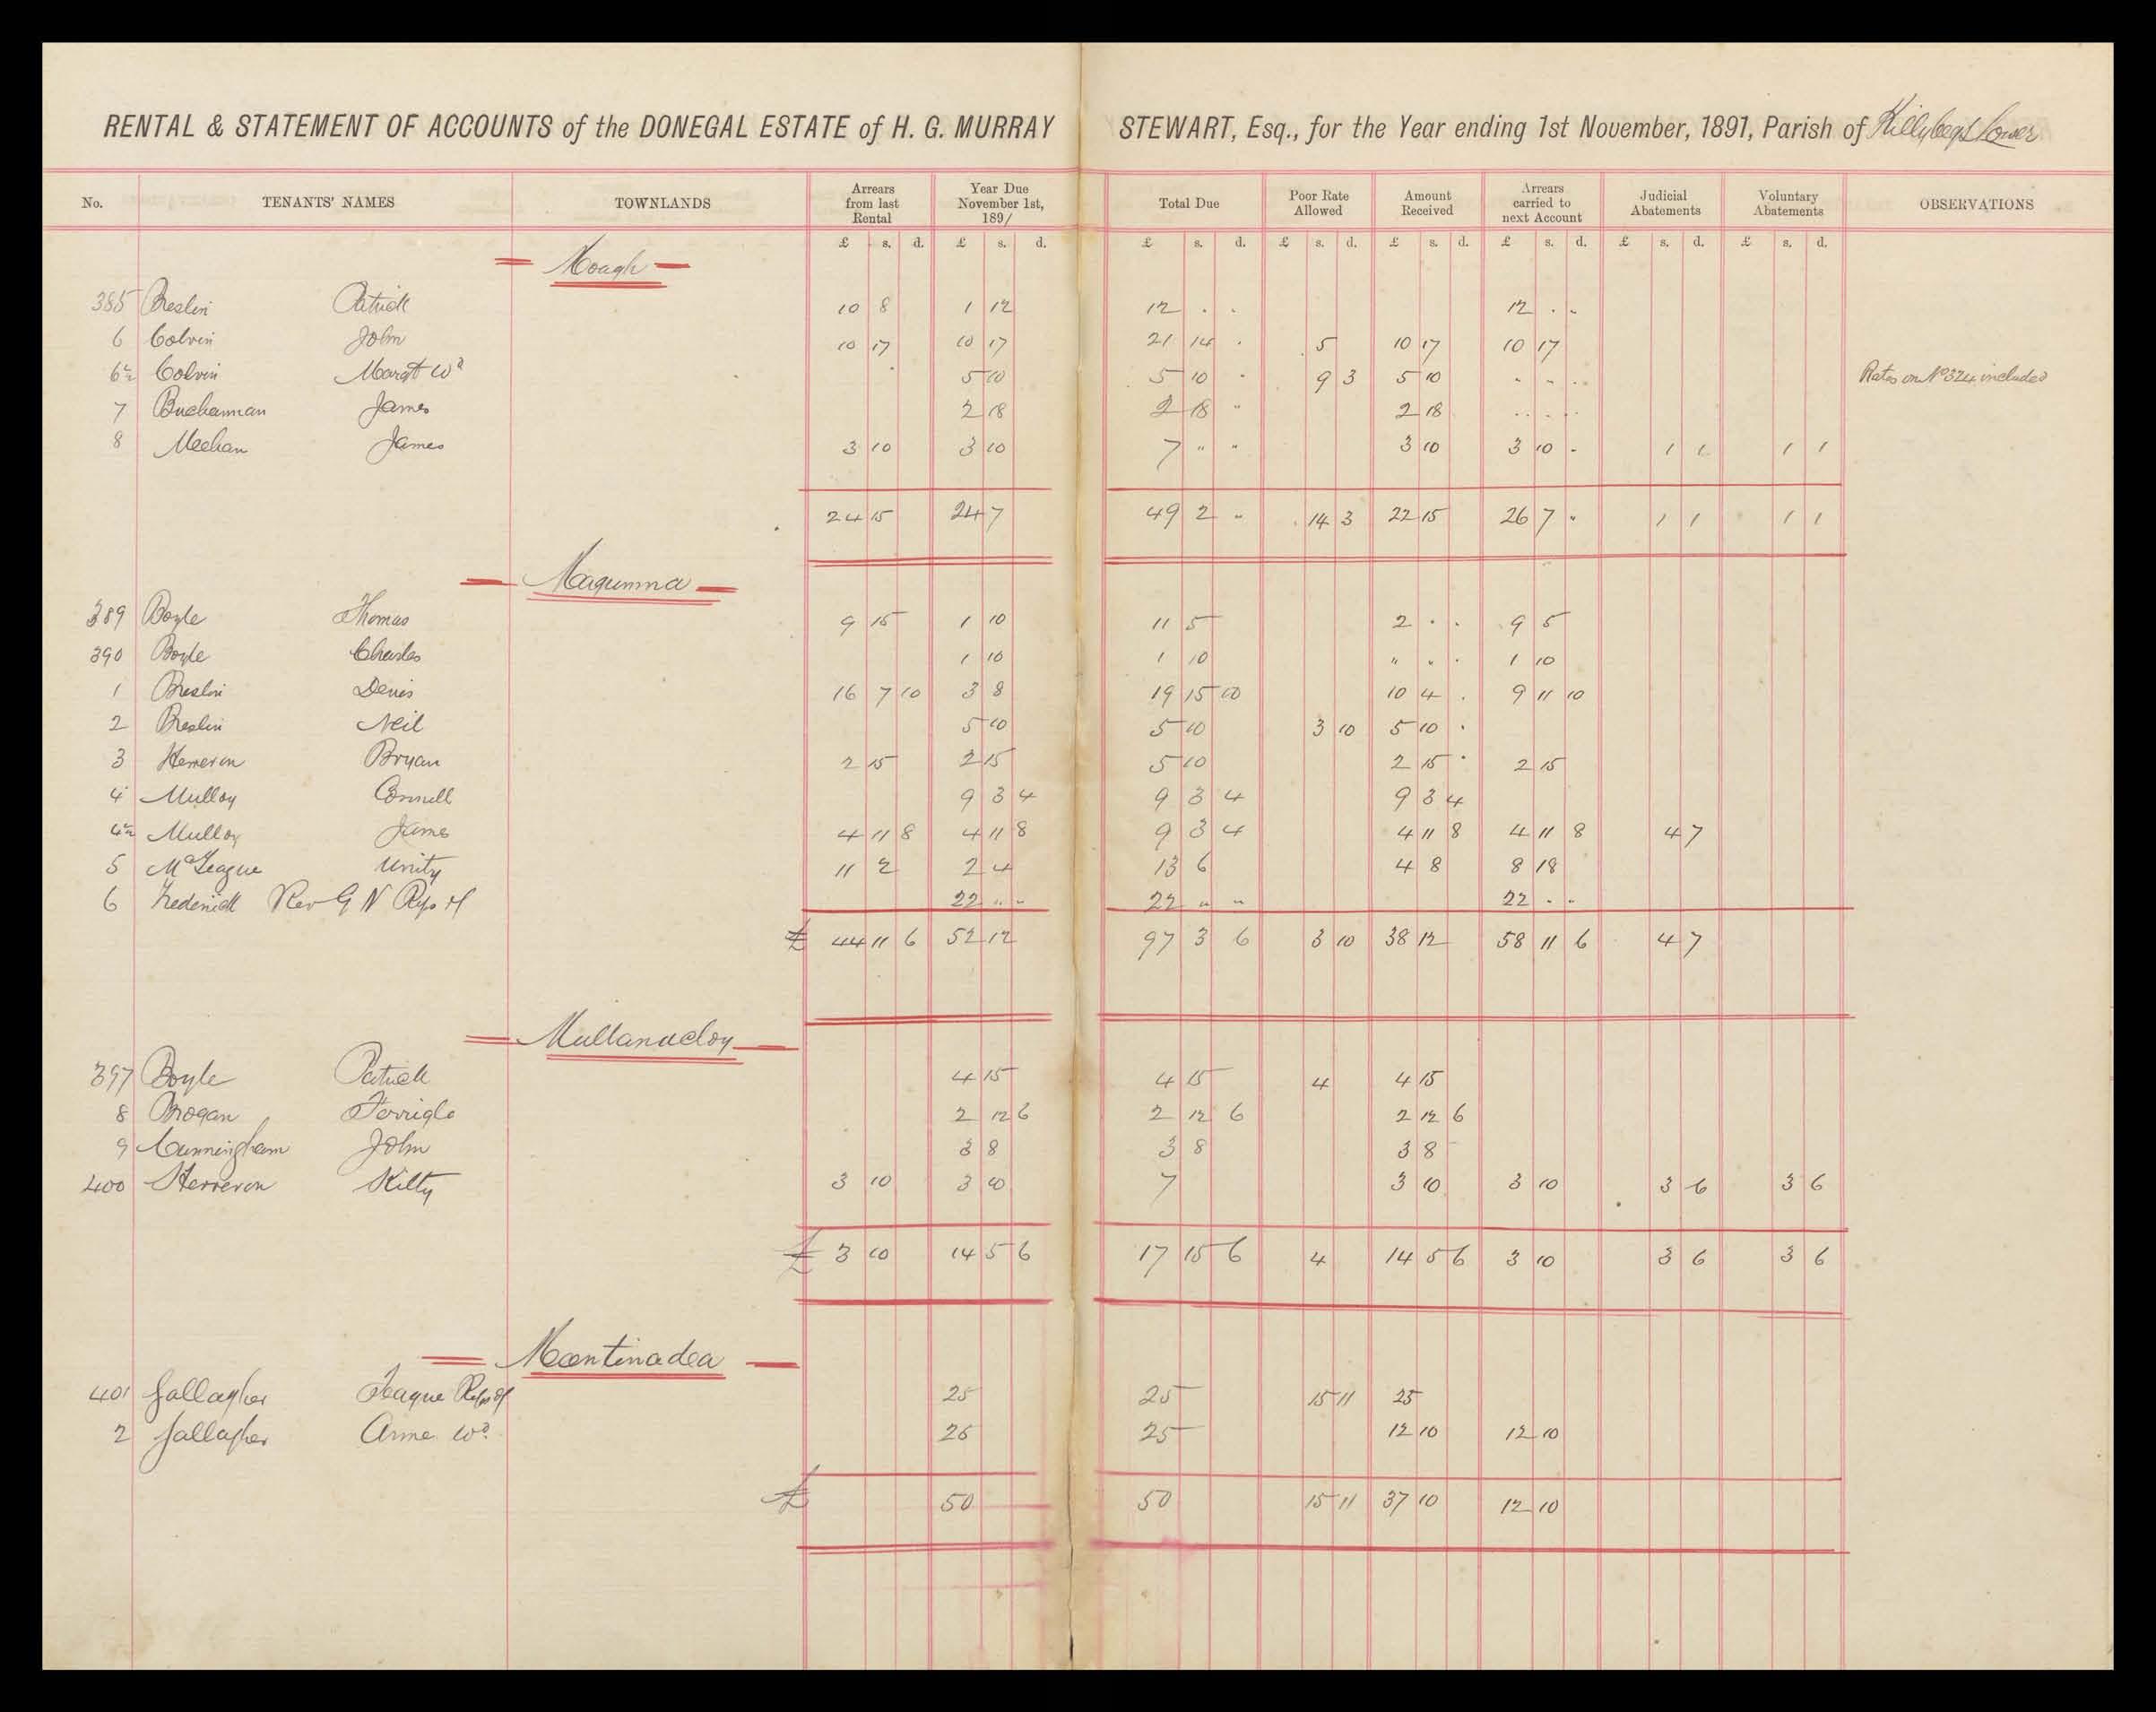 RENTAL & STATEMENT OF ACCOUNTS of the DONEGAL ESTATE of H. G. MURRAY STEWART, Esq., for the Year ending 1st November, 1891, Parish of Killybegs Lower
No. TENANTS' NAMES TOWNLANDS Arrears from last Rental Year Due November 1st, 1891 Total Due Poor Rate Allowed Amount Received Arrears carried to next Account Judicial Abatements Voluntary Abatements OBSERVATIONS
£ s. d. £ s. d. £ s. d. £ s. d. £ s. d. £ s. d. £ s. d. £ s. d.
Moagh
385 Breslin Patrick 10 8 1 12 12 . . 12 . .
6 Colvin John 10 17 10 17 21 14 . 5 10 17 10 17
6½ Colvin Margt Wd 5 10 5 10 " 9 3 5 10 " " " Rates on No 324 included
7 Buchannan James 2 18 2 18 " 2 18 . . .
8 Meehan James 3 10 3 10 7 " " 3 10 3 10 - 1 1 1 1
24 15 24 7 49 2 " 14 3 22 15 26 7 " 1 1 1 1
Magumna
389 Boyle Thomas 9 15 1 10 11 5 2 . . 9 5
390 Boyle Charles 1 10 1 10 " " . 1 10
1 Breslin Denis 16 7 10 3 8 19 15 10 10 4 . 9 11 10
2 Breslin Neil 5 10 5 10 3 10 5 10 .
3 Herreron Bryan 2 15 2 15 5 10 2 15 . 2 15
4 Mulloy Connell 9 3 4 9 3 4 9 3 4
4½ Mulloy James 4 11 8 4 11 8 9 3 4 4 11 8 4 11 8 4 7
5 McTeague Unity 11 2 2 4 13 6 4 8 8 18
6 Tredenick Rev G N Reps of 22 " " 22 " " 22 . .
£ 44 11 6 52 12 97 3 6 3 10 38 12 58 11 6 4 7
Mullanacloy
397 Boyle Patrick 4 15 4 15 4 4 15
8 Brogan Ferrigle 2 12 6 2 12 6 2 12 6
9 Cunningham John 3 8 3 8 3 8
400 Herreron Kitty 3 10 3 10 7 3 10 3 10 3 6 3 6
£ 3 10 14 5 6 17 15 6 4 14 5 6 3 10 3 6 3 6
Meentinadea
401 Gallagher Teague Reps of 25 25 15 11 25
2 Gallagher Anne Wd. 25 25 12 10 12 10
£ 50 50 15 11 37 10 12 10